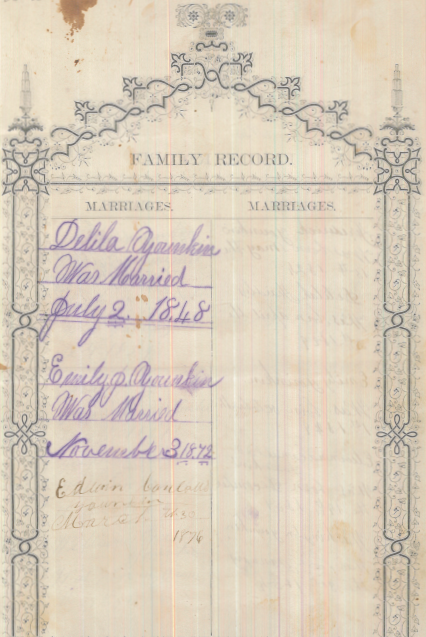 FAMILY RECORD.
MARRIAGES. MARRIAGES.
Delila Younkin
Was Married
July 2. 1848
Emily J. Younkin
Was Married
November 3 1872
Edwin
Younkin
March
1876